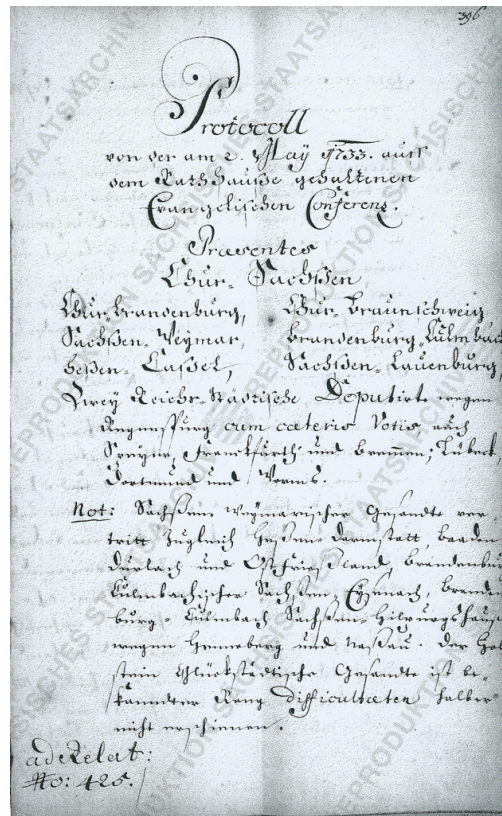 396
Protocoll
von der am 2. May 1733. auff
dem Rathhauße gehaltenen
Evangelischen Conferenz.
Præsentes
Chur-Sachßen
Chur-Brandenburg, Chur-Braunschweig
Sachßen-Weymar, Brandenburg-Culmbach
Heßen-Caßel, Sachßen-Lauenburg,
Zwey Reichs-Städtische Deputirte wegen
Regenspurg cum cæteris Votis auch
Speyer, Franckfurth und Bremen, Lübeck,
Dortmund und Worms.
Not: Sachßen Weymarischer Gesandte ver
tritt zugleich Heßen-Darmstatt, Baaden
Durlach und Ostfrießland, Brandenbur
Culmbachischer Sachßen-Eysenach, Brand
burg-Culmbach Sachßen-Hilburgshauß
wegen Henneberg und Naßau. Der Hol
stein Glückstädtische Gesandte ist be-
kandter Rang difficultæten halber
nicht erschienen.
ad Relat:
No: 425.
REPRODUKTION SÄCHSISCHES STAATSARCHIV